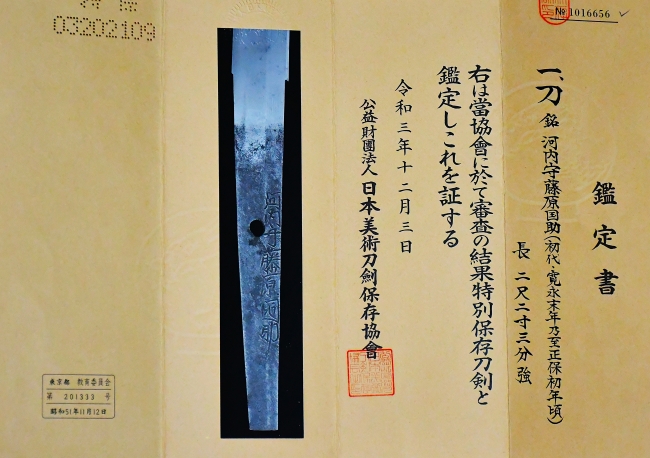 № 1016656
鑑定書
一、刀 銘 河内守藤原国助(初代・寛永末年乃至正保初年頃)
長 二尺二寸三分強
右は當協會に於て審査の結果特別保存刀剣と
鑑定しこれを証する
令和三年十二月三日
公益財團法人 日本美術刀劍保存協會
河内守藤原国助
03202109
東京都 教育委員会
第 201333 号
昭和51年11月12日